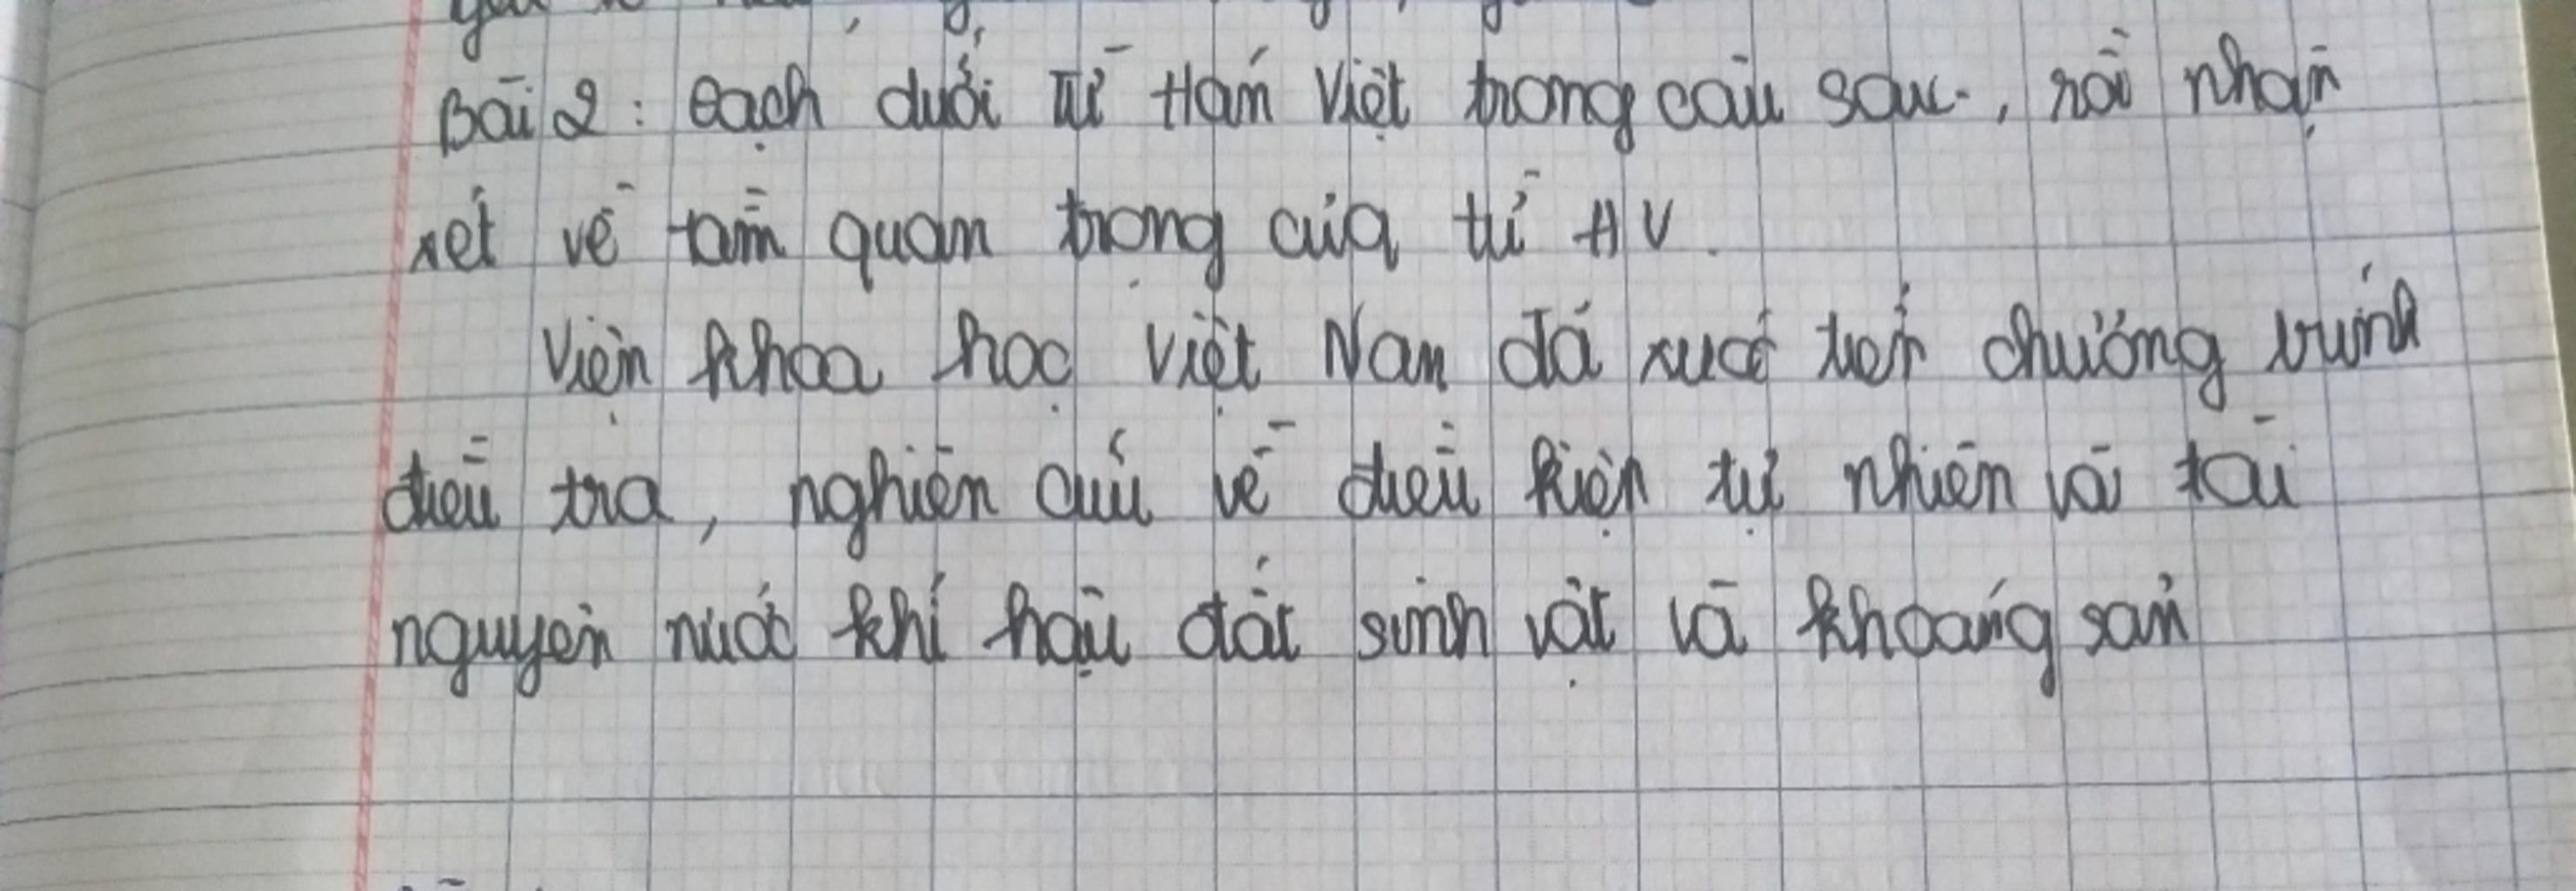 Bài 2: Gạch dưới từ Hán Việt trong câu sau, rồi nhận
xét về tầm quan trọng của từ HV.
Viện khoa học Việt Nam đã xúc tiến chương trình
điều tra, nghiên cứu về điều kiện tự nhiên và tài
nguyên nước khí hậu đất sinh vật và khoáng sản